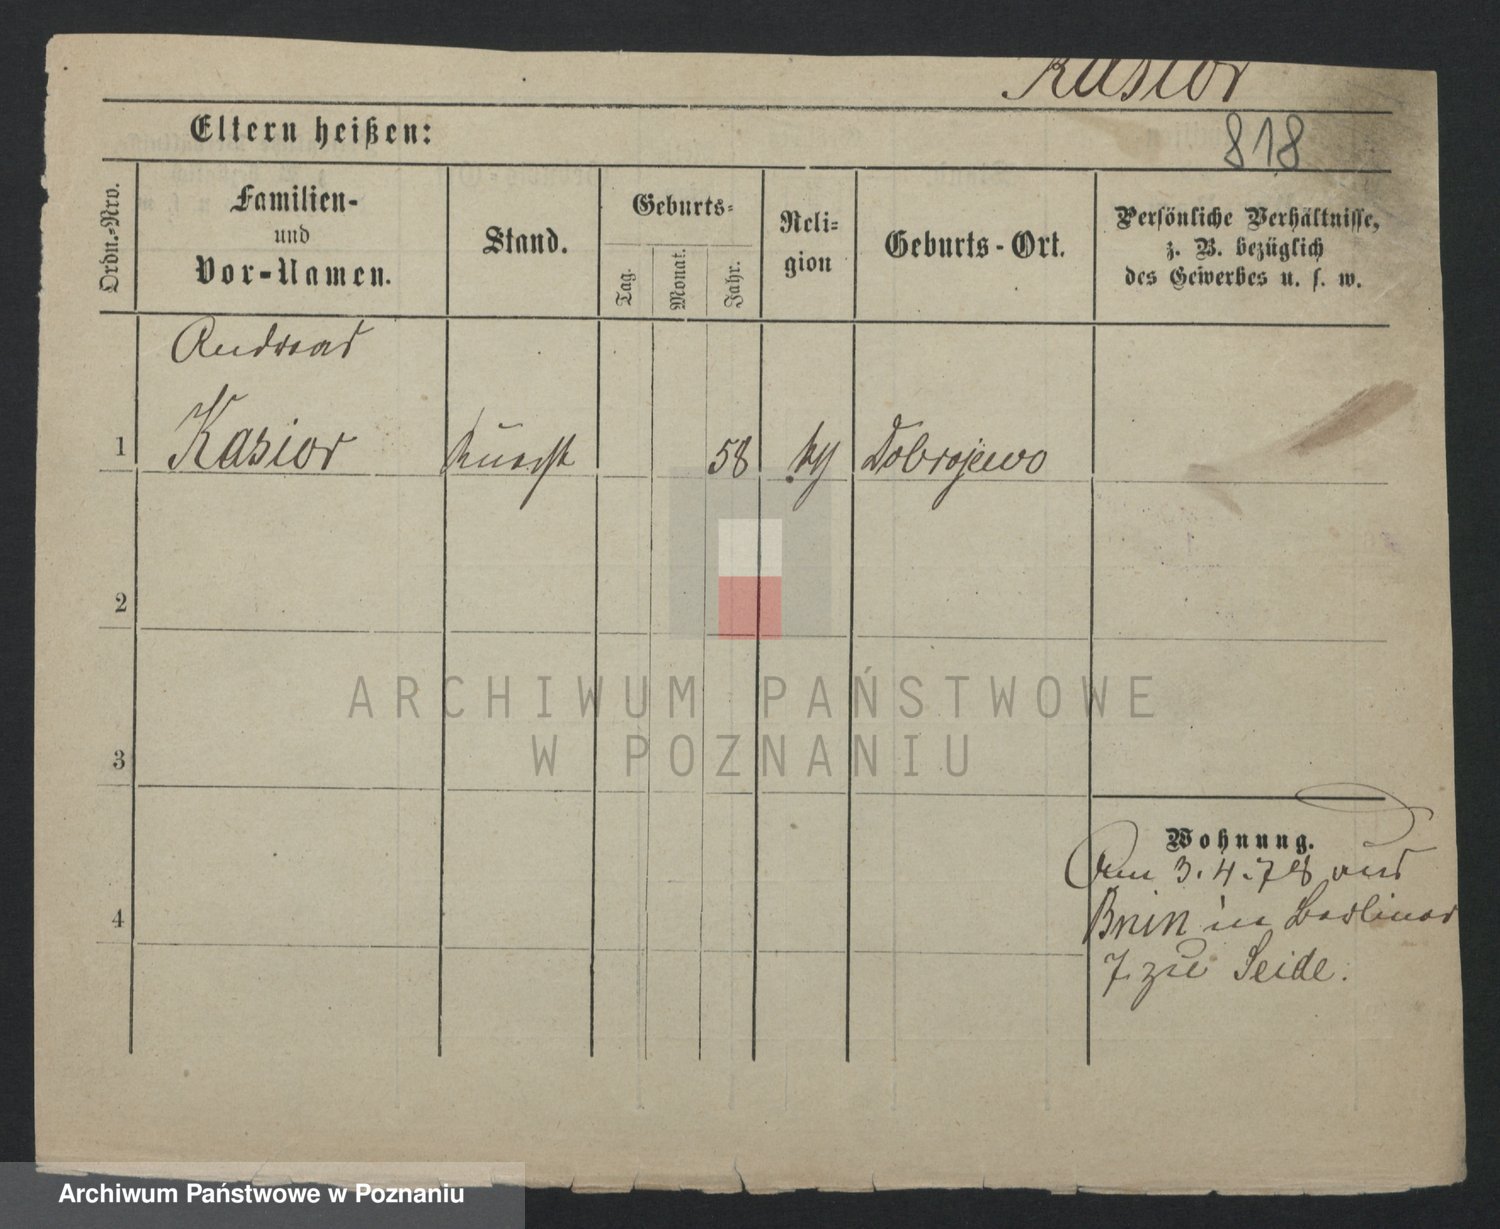 Kasior
818
Eltern heißen:
Ordn.-Nro.
Familien-
und
Vor-Namen.
Stand.
Geburts-
Tag.
Monat.
Jahr.
Reli-
gion
Geburts-Ort.
Persönliche Verhältnisse,
z. B. bezüglich
des Gewerbes u. s. w.
Andreas
1 Kasior Knecht 58 Dobrojewo
2
3
4
Wohnung.
Am 3.4.78 aus
Bnin in Berliner
7 zu Seide.
ARCHIWUM PAŃSTWOWE
W POZNANIU
Archiwum Państwowe w Poznaniu